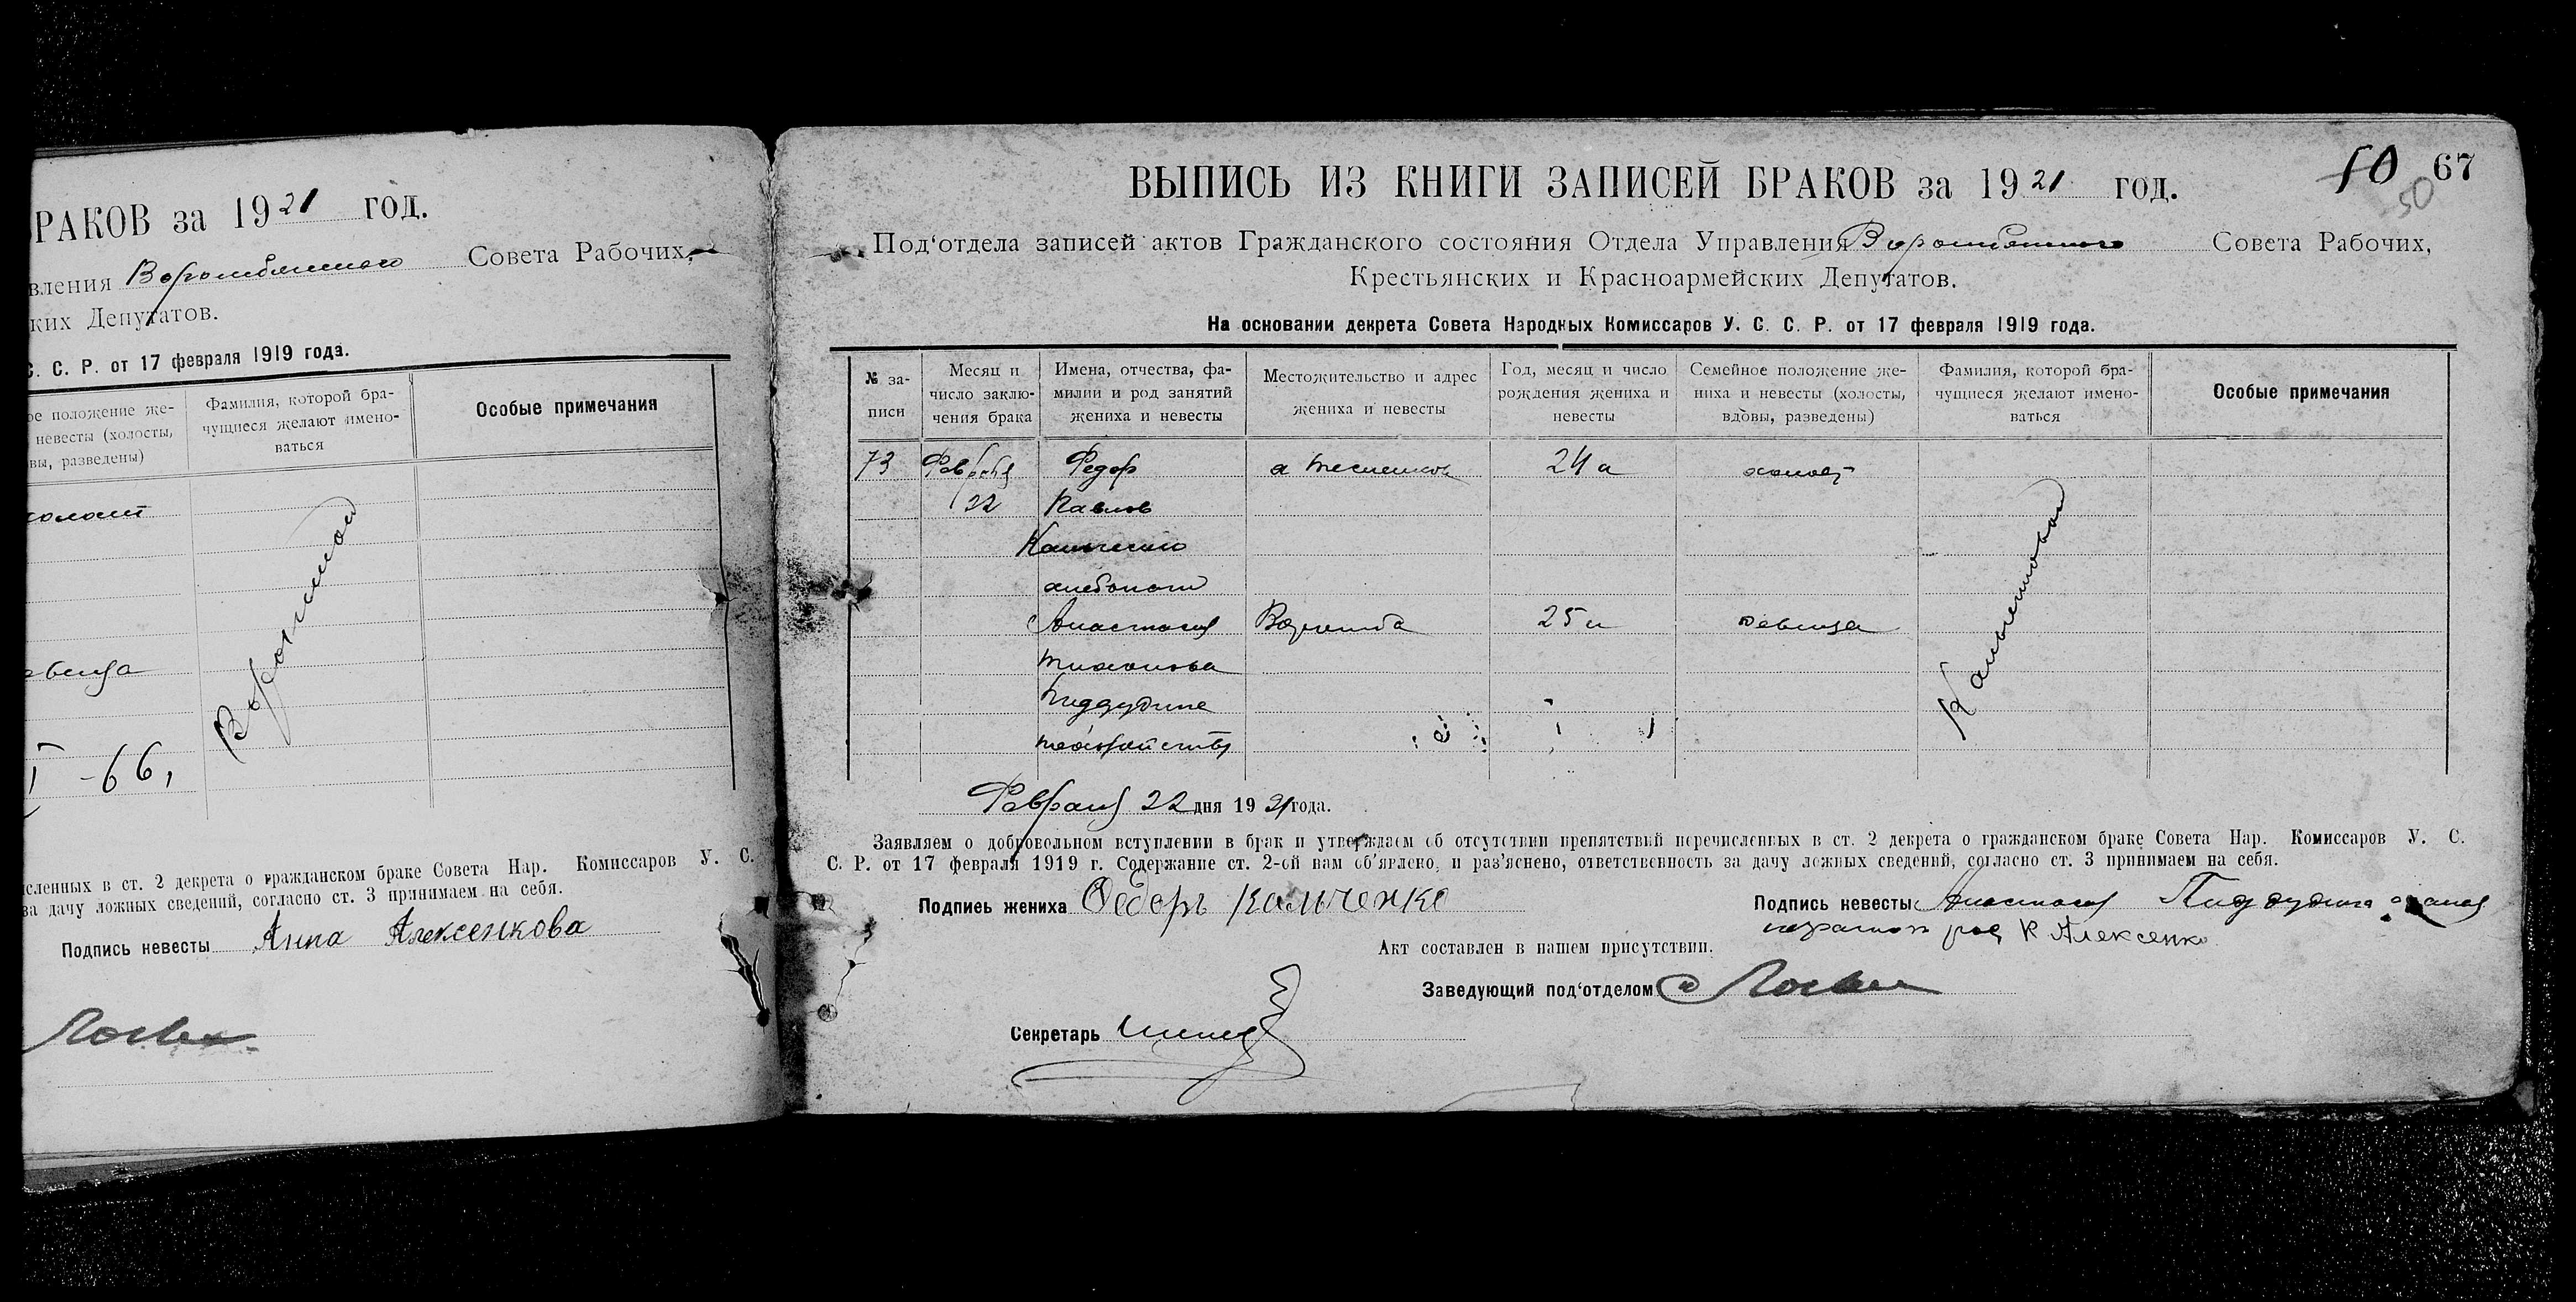 РАКОВ за 1921 год.
вления Совета Рабочих,
ких Депутатов.
С. С. Р. от 17 февраля 1919 года.
ое положение же-
невесты (холосты,
вы, разведены)
Фамилия, которой бра-
чущиеся желают имено-
ваться
Особые примечания
холост
евица
I - 66,
сленных в ст. 2 декрета о гражданском браке Совета Нар. Комиссаров У. С.
за дачу ложных сведений, согласно ст. 3 принимаем на себя.
Подпись невесты Анна Алексенкова
50 67
50
ВЫПИСЬ ИЗ КНИГИ ЗАПИСЕЙ БРАКОВ за 1921 год.
Под‘отдела записей актов Гражданского состояния Отдела Управления Совета Рабочих,
Крестьянских и Красноармейских Депутатов.
На основании декрета Совета Народных Комиссаров У. С. С. Р. от 17 февраля 1919 года.
№ за-
писи
Месяц и
число заклю-
чения брака
Имена, отчества, фа-
милии и род занятий
жениха и невесты
Местожительство и адрес
жениха и невесты
Год, месяц и число
рождения жениха и
невесты
Семейное положение же-
ниха и невесты (холосты,
вдовы, разведены)
Фамилия, которой бра-
чущиеся желают имено-
ваться
Особые примечания
73 Февраля Федор 24 холост
22 Павлов
Кальченко
хлебопаш
Анастасия Ворожба 25 девица
Тихонова
Пиддубная
Февраля 22 дня 1921 года.
Заявляем о добровольном вступлении в брак и утверждаем об отсутствии препятствий перечисленных в ст. 2 декрета о гражданском браке Совета Нар. Комиссаров У. С.
С. Р. от 17 февраля 1919 г. Содержание ст. 2-ой нам об‘явлено, и раз‘яснено, ответственность за дачу ложных сведений, согласно ст. 3 принимаем на себя.
Подпись жениха Федоръ Кальченко
Подпись невесты Анастасия Пиддубная
К Алексенко
Акт составлен в нашем присутствии.
Заведующий под‘отделом
Секретарь